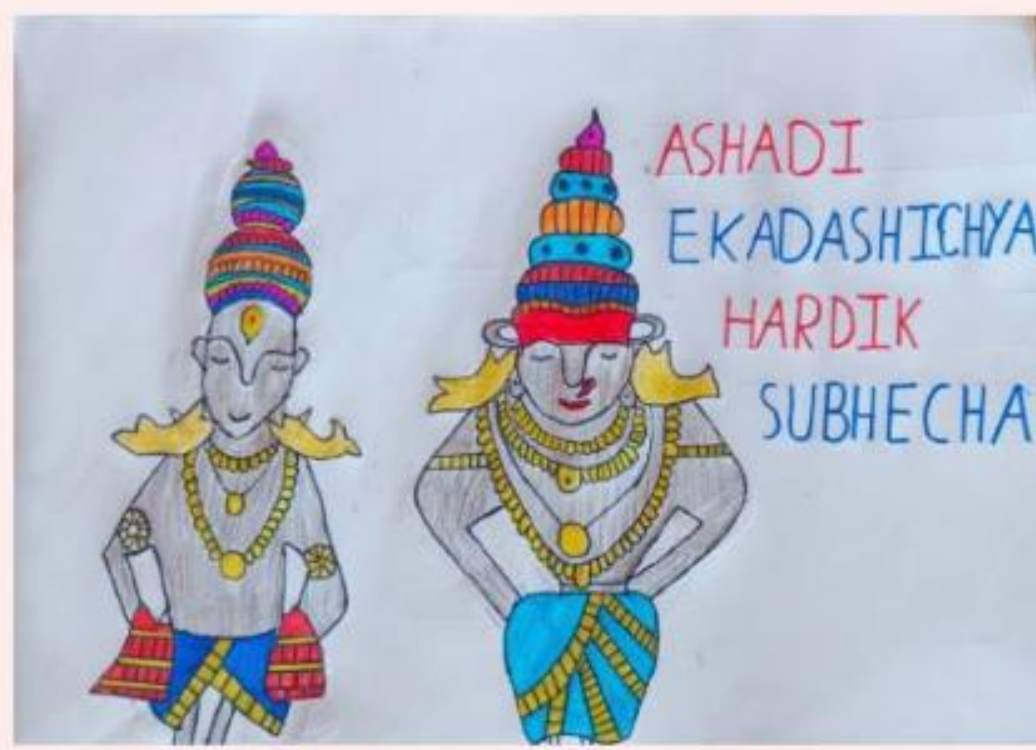 ASHADI
EKADASHICHYA
HARDIK
SUBHECHA